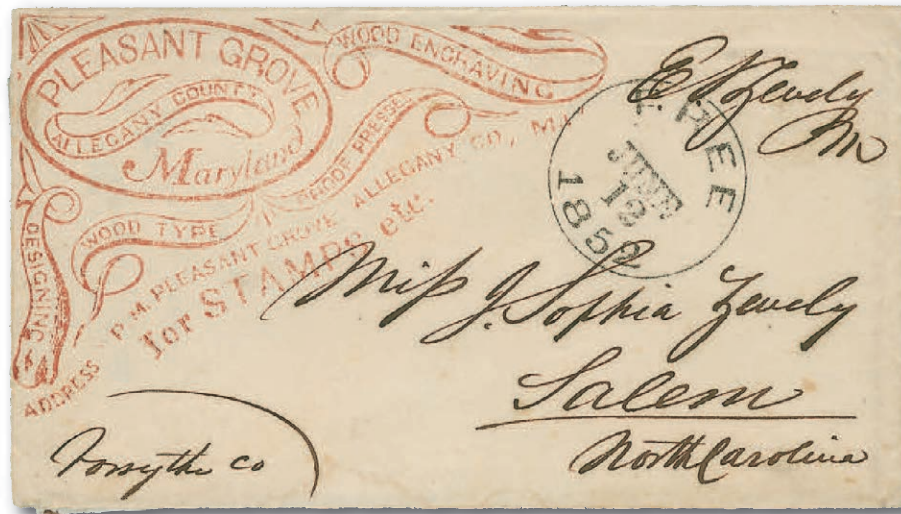 PLEASANT GROVE
ALLEGANY COUNTY
Maryland
WOOD ENGRAVING
PROOF PRESSES
WOOD TYPE
DESIGNING
ADDRESS P.M. PLEASANT GROVE ALLEGANY CO., MD.
for STAMPS etc.
E. S. Zevely
PM
FREE
JUNE
12
1852
Miss J. Sophia Zevely
Salem
North Carolina
Forsythe Co